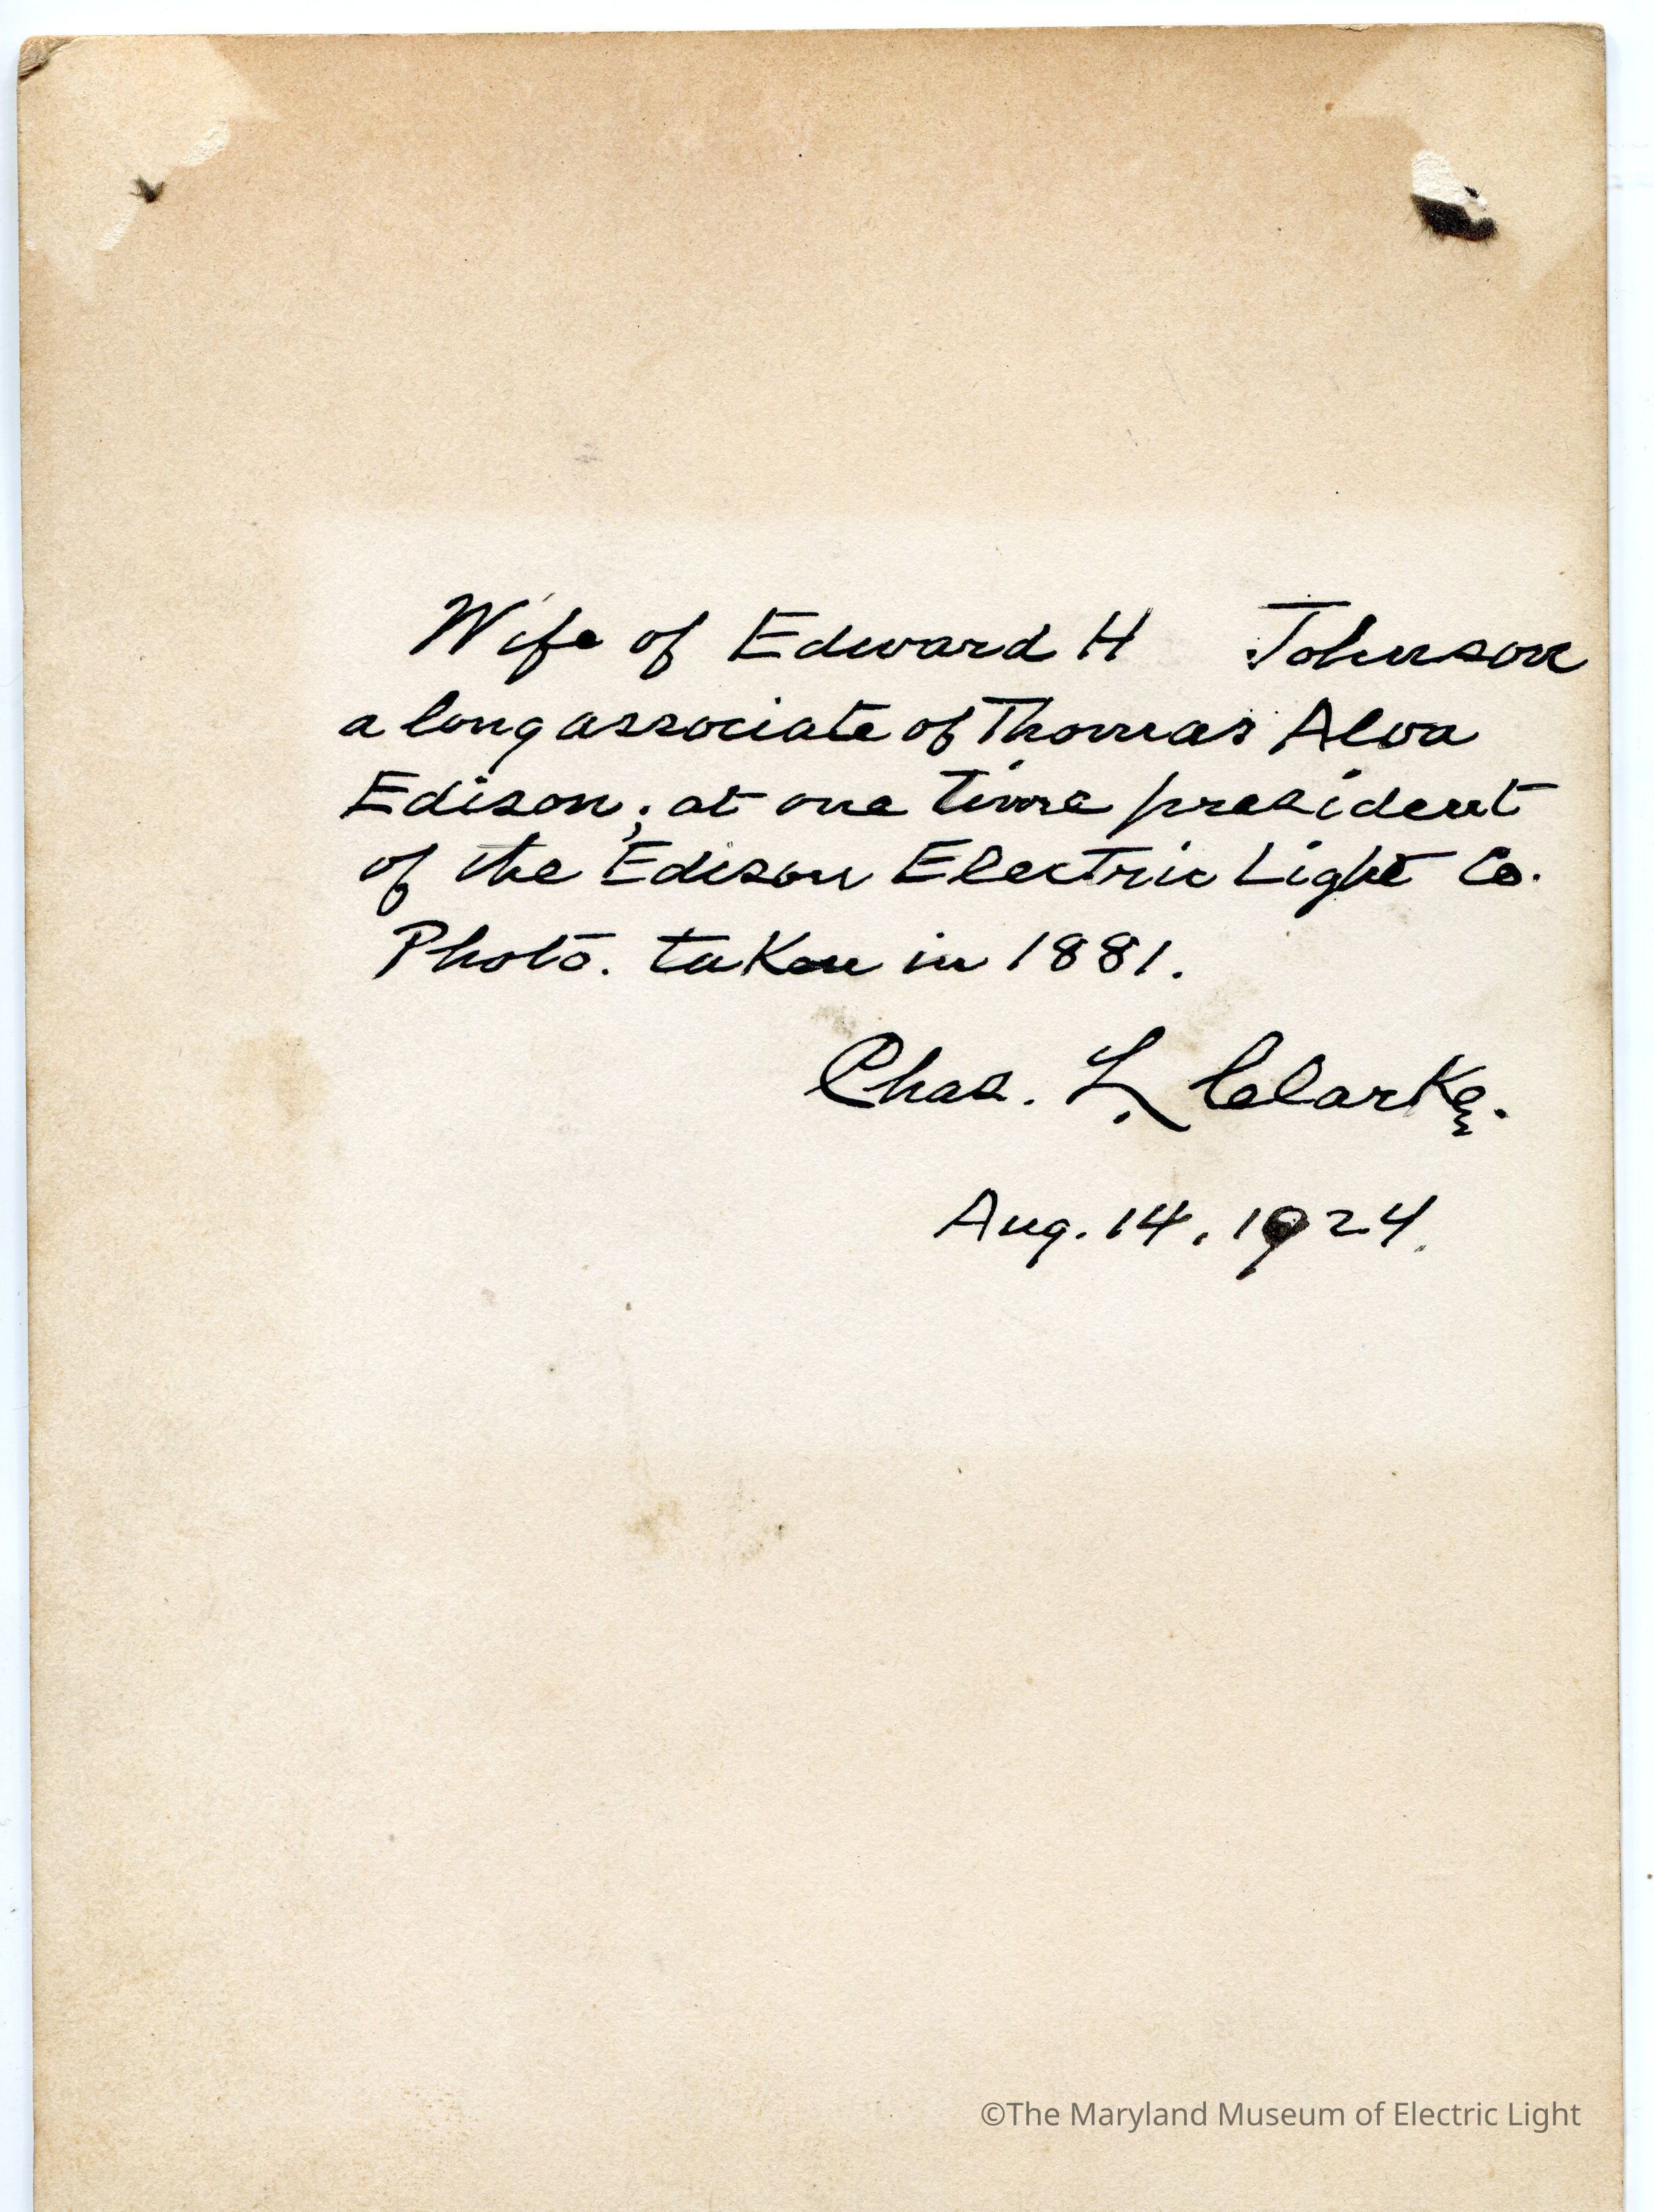 Wife of Edward H Johnson
a long associate of Thomas Alva
Edison; at one time president
of the Edison Electric Light Co.
Photo. taken in 1881.
Chas. L. Clarke.
Aug. 14, 1924.
©The Maryland Museum of Electric Light